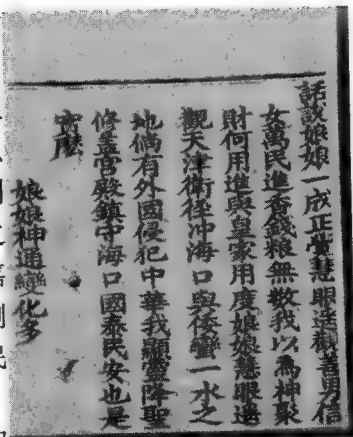 話說娘娘一成正覺慧眼遥觀善男信
女萬民進香錢粮無数我以為神聚
財何用進與皇家用度娘娘慧眼遥
觀天津衛徑冲海口與倭蠻一水之
地倘有外國侵犯中華我顯靈降聖
修盖宫殿鎮守海口國泰民安也是
寔
娘娘神通變化多